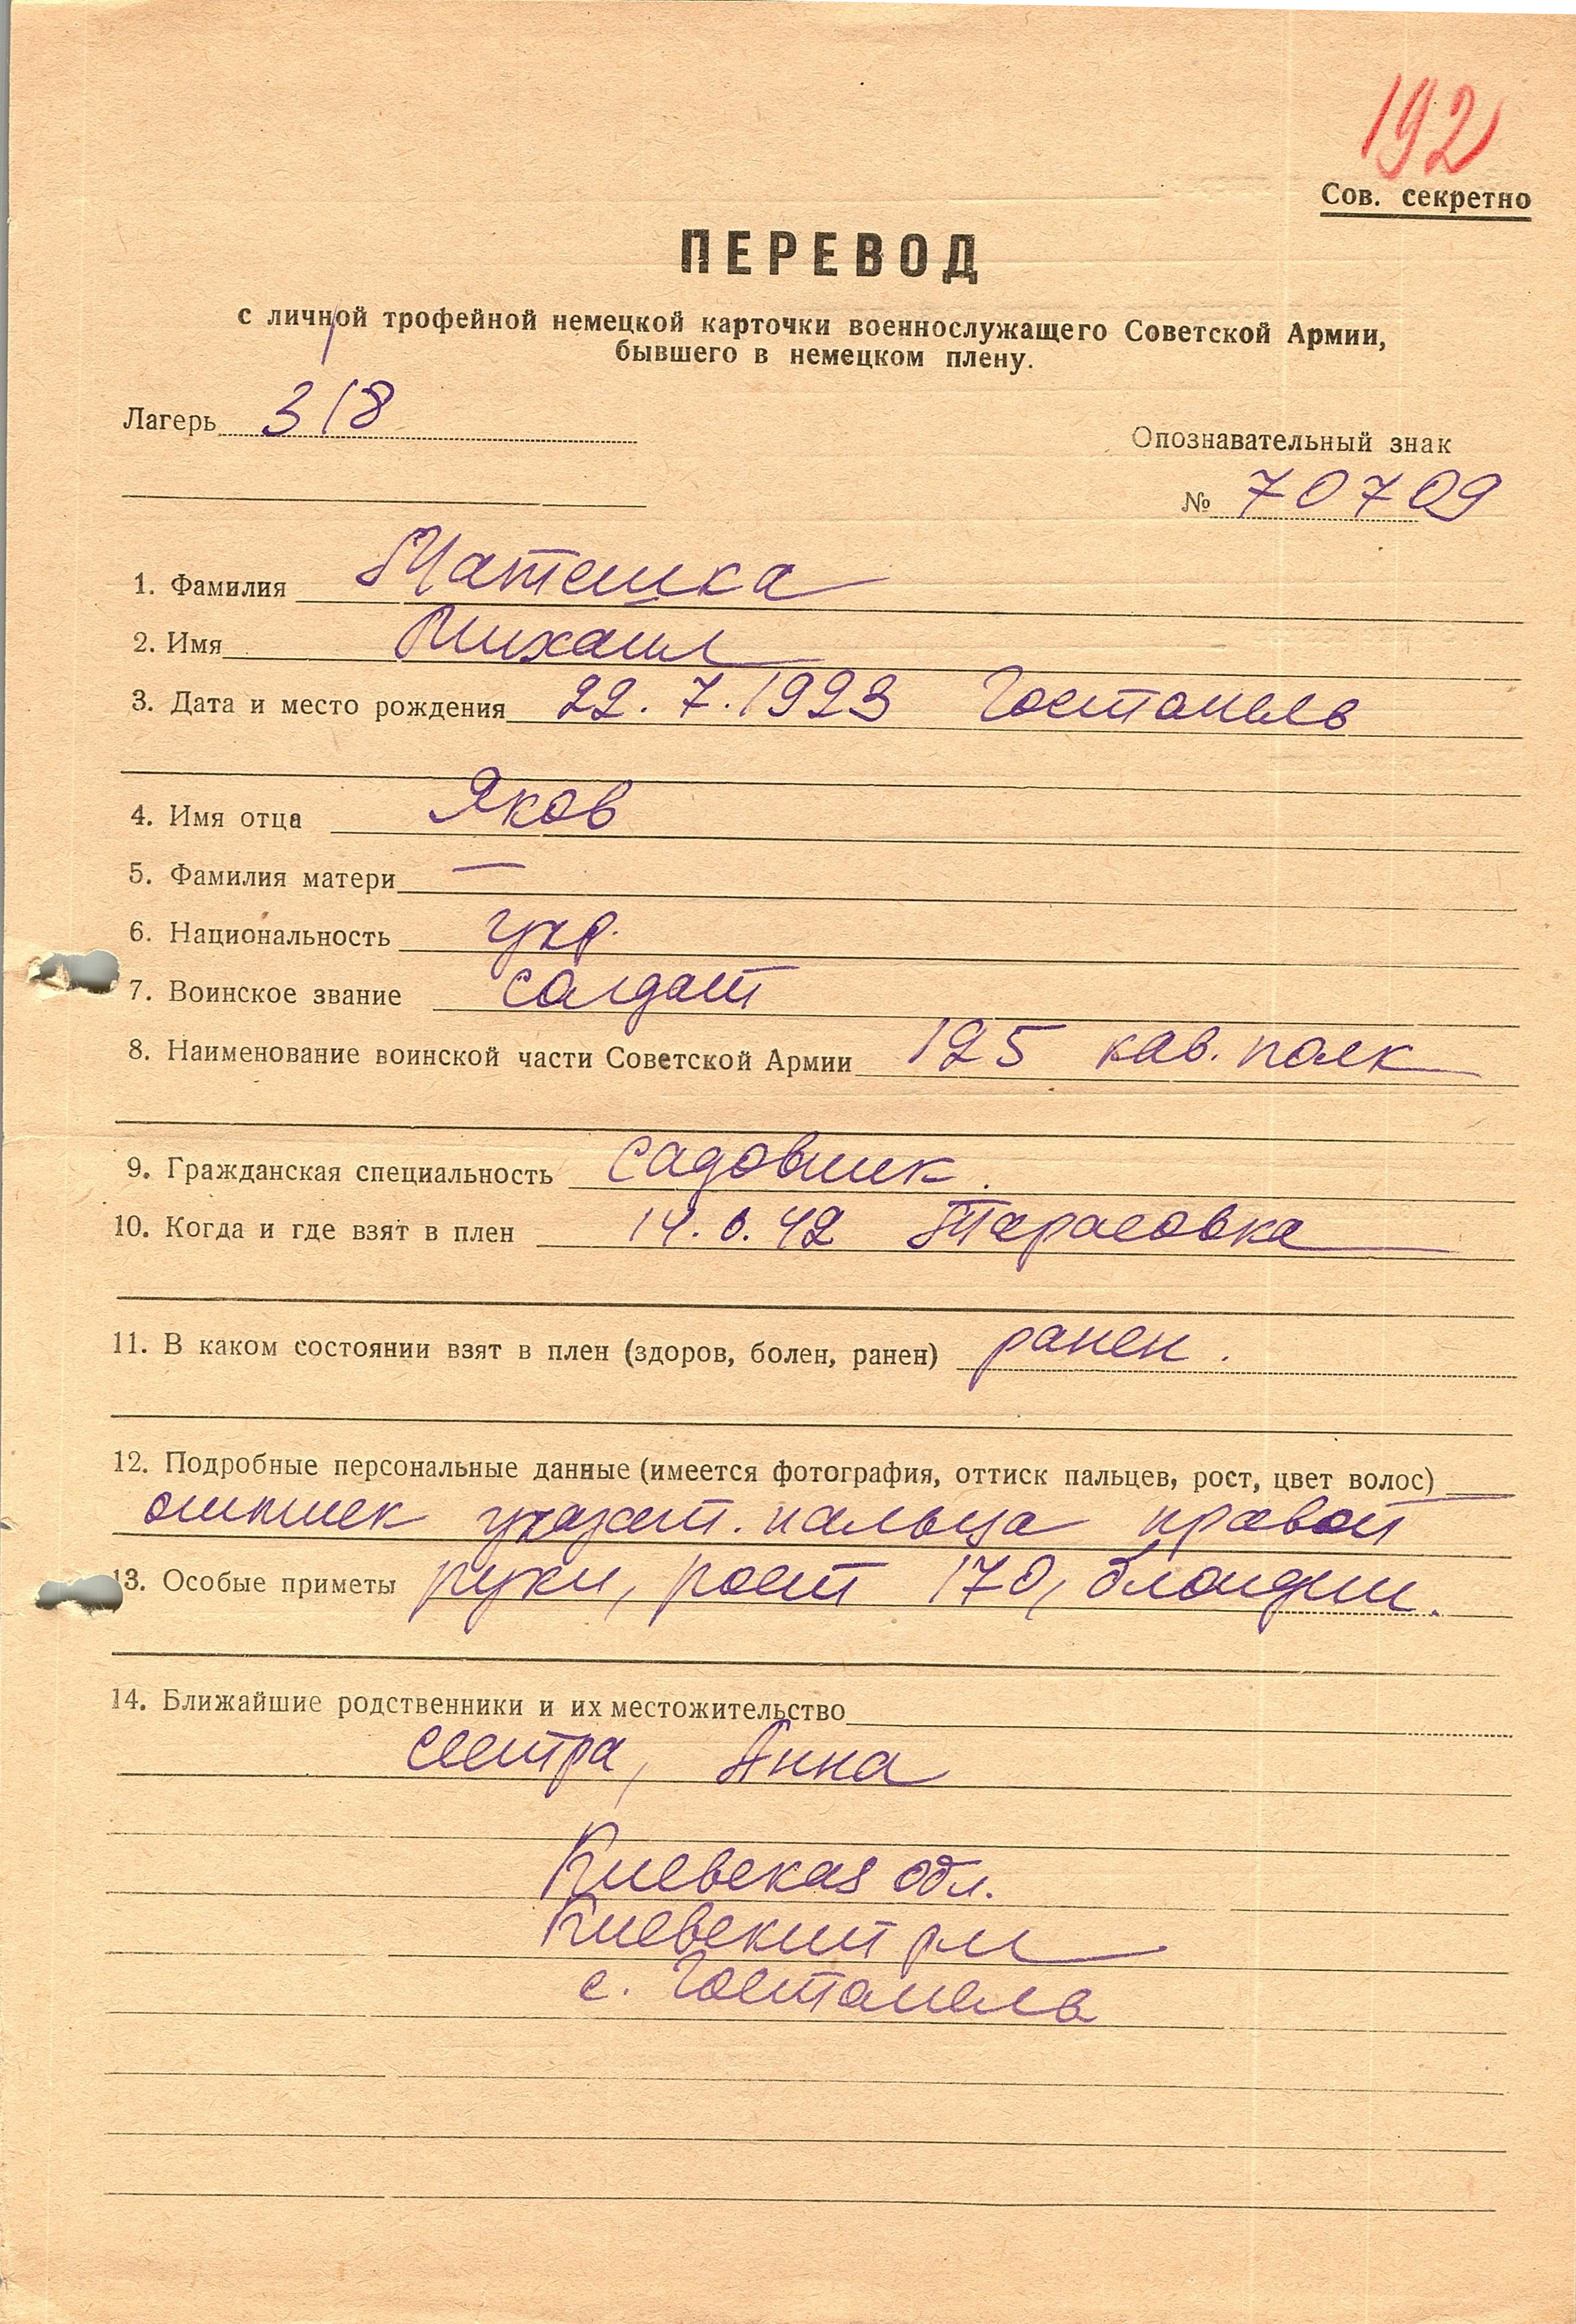 192
Сов. секретно
ПЕРЕВОД
с личной трофейной немецкой карточки военнослужащего Советской Армии,
бывшего в немецком плену.
Лагерь 318
Опознавательный знак
№ 70709
1. Фамилия Матешка
2. Имя Михаил
3. Дата и место рождения 22.7.1923 Гостомель
4. Имя отца Яков
5. Фамилия матери —
6. Национальность укр.
7. Воинское звание солдат
8. Наименование воинской части Советской Армии 125 кав. полк
9. Гражданская специальность садовник.
10. Когда и где взят в плен 14. 42 Тарасовка
11. В каком состоянии взят в плен (здоров, болен, ранен) ранен.
12. Подробные персональные данные (имеется фотография, оттиск пальцев, рост, цвет волос)
указат. пальца правой
13. Особые приметы руки, рост 170, блондин.
14. Ближайшие родственники и их местожительство
сестра, Анна
Киевская обл.
Киевский рн
с. Гостомель